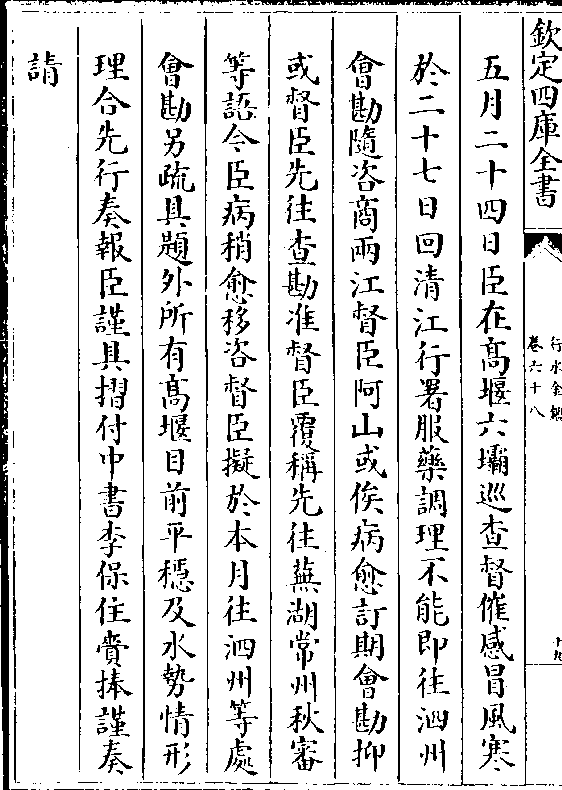 欽定四庫全書
行水金鑑
卷六十八
十九
五月二十四日臣在高堰六壩巡查督催感冒風寒
於二十七日回清江行署服藥調理不能即往泗州
會勘隨咨商兩江督臣阿山或俟病愈訂期會勘抑
或督臣先往查勘准督臣覆稱先往蕪湖常州秋審
等語今臣病稍愈移咨督臣擬於本月往泗州等處
會勘另疏具題外所有高堰目前平穩及水勢情形
理合先行奏報臣謹具摺付中書李保住賫捧謹奏
請